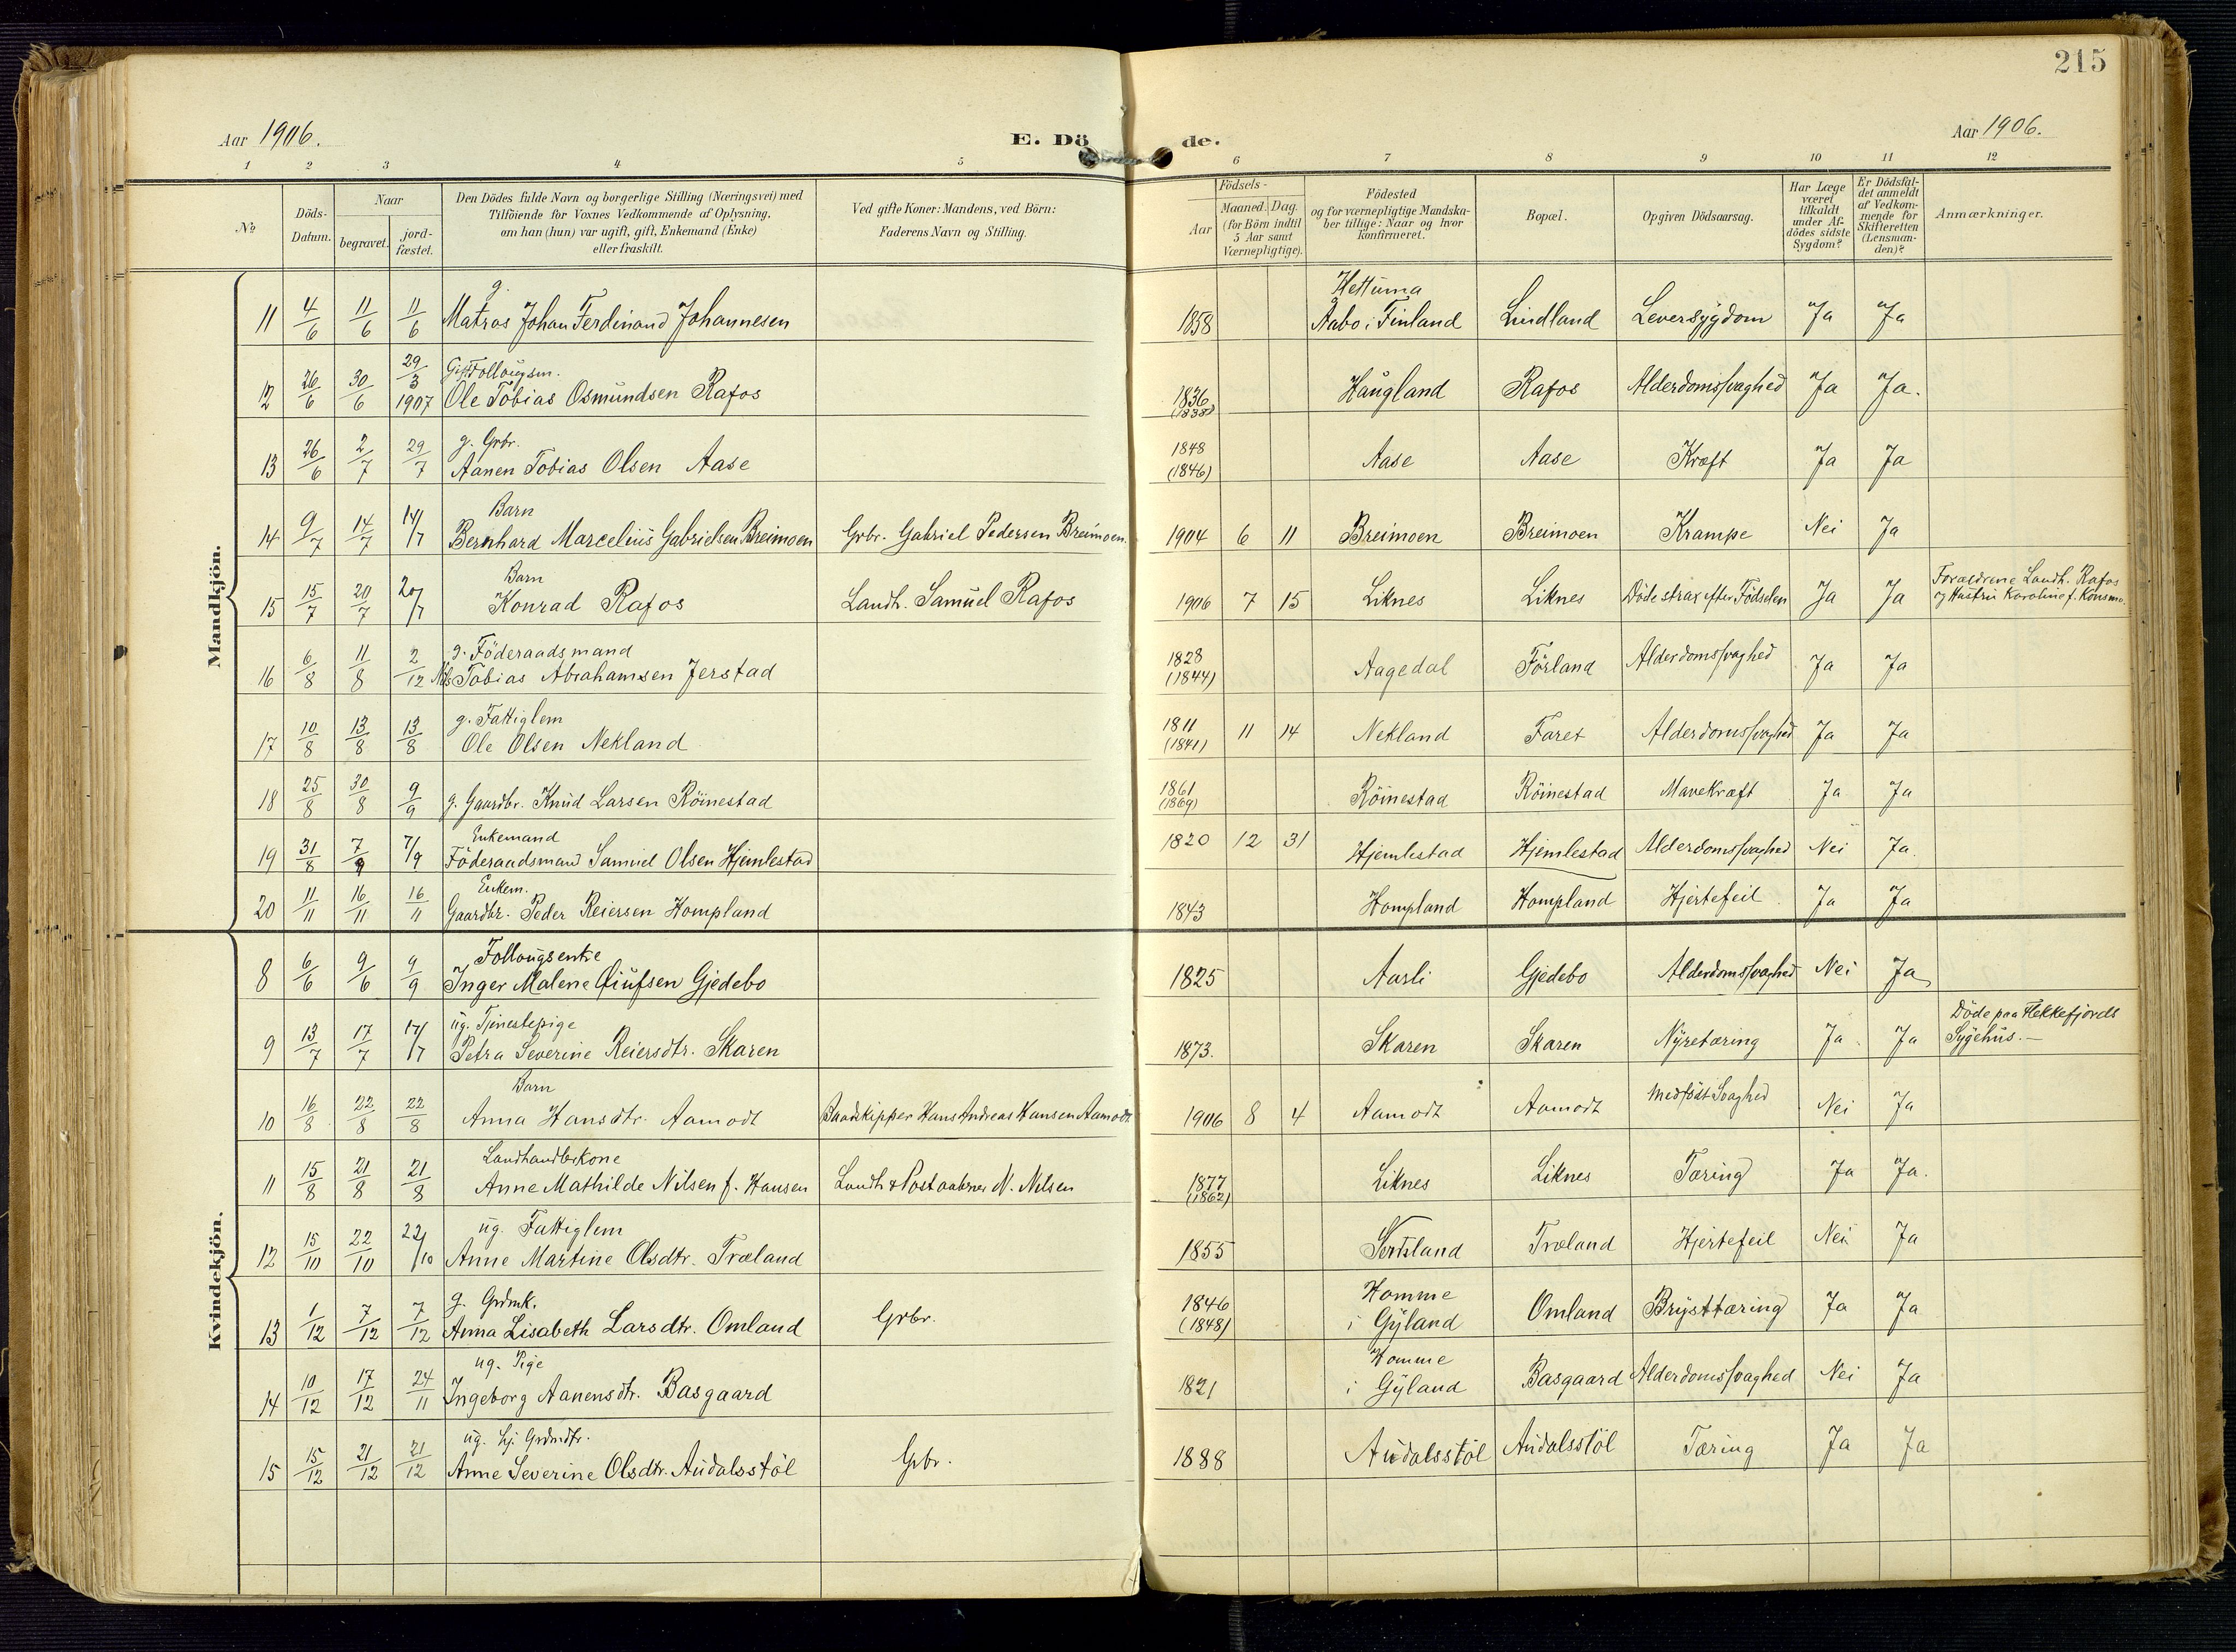 215
Aar 1906.
E. Dö de.
Aar 1906.
1 2 3 4 5 6 7 8 9 10 11 12
No
Döds-
Datum.
Naar
begravet.
jord-
fæstet.
Den Dödes fulde Navn og borgerlige Stilling (Næringsvei) med
Tilföiende for Voxnes Vedkommende af Oplysning,
om han (hun) var ugift, gift, Enkemand (Enke)
eller fraskilt.
Ved gifte Koner: Mandens, ved Börn:
Faderens Navn og Stilling.
Födsels-
Aar
Maaned. Dag.
(for Börn indtil
5 Aar samt
Værnepligtige).
Födested
og for værnepligtige Mandska-
ber tillige: Naar og hvor
konfirmeret.
Bopæl.
Opgiven Dödsaarsag.
Har Læge
været
tilkaldt
under Af-
dödes sidste
Sygdom?
Er Dödsfal-
det anmeldt
af Vedkom-
mende for
Skifteretten
(Lensman-
den)?
Anmærkninger.
Mandkjön.
g. Hettuma
11 4/6 11/6 11/6 Matros Johan Ferdinand Johannesen 1858 Aabo i Finland Lindland Leversygdom Ja Ja
Gift Follougsm.
12 26/6 30/6 29/3 1907 Ole Tobias Osmundsen Rafos 1836 (1838) Haugland Rafos Alderdomssvaghed Ja Ja.
g. Grbr.
13 26/6 2/7 29/7 Aanen Tobias Olsen Aase 1848 (1846) Aase Aase Kræft Ja Ja
Barn
14 9/7 14/7 14/7 Bernhard Marcelius Gabrielsen Breimoen Grbr. Gabriel Pedersen Breimoen. 1904 6 11 Breimoen Breimoen Krampe Nei Ja
Barn
15 15/7 20/7 20/7 Konrad Rafos Landh. Samuel Rafos 1906 7 15 Liknes Liknes Döde strax efter Födselen Ja Ja Forældrene Landh. Rafos
og Hustru Karoline f. Konsmo.
g. Föderaadsmand
16 6/8 11/8 2/12 Nils Tobias Abrahamsen Jerstad 1828 (1844) Aagedal Förland Alderdomssvaghed Ja Ja
g. Fattiglem
17 10/8 13/8 13/8 Ole Olsen Nekland 1811 (1841) 11 14 Nekland Faret Alderdomssvaghed Ja Ja
18 25/8 30/8 9/9 g. Gaardbr. Knud Larsen Röinestad 1861 (1869) Röinestad Röinestad Mavekræft Ja Ja
Enkemand
19 31/8 7/9 7/9 Föderaadsmand Samuel Olsen Hjemlestad 1820 12 31 Hjemlestad Hjemlestad Alderdomssvaghed Nei Ja.
Enkem.
20 11/11 16/11 16/11 Gaardbr. Peder Reiersen Hompland 1843 Hompland Hompland Hjertefeil Ja Ja
Kvindekjön.
Follougsenke
8 6/6 9/6 9/9 Inger Malene Gjedebo 1825 Aarli Gjedebo Alderdomssvaghed Nei Ja
ug. Tjenestepige
9 13/7 17/7 17/7 Petra Severine Reiersdtr. Skaren 1873. Skaren Skaren Nyretæring Ja Ja Döde paa Flekkefjords
Sygehus.-
Barn
10 16/8 22/8 22/8 Anna Hansdtr. Aamodt Baadskipper Hans Andreas Hansen Aamodt 1906 8 4 Aamodt Aamodt Medfödt Svaghed Nei Ja
Landhandlerkone
11 15/8 21/8 21/8 Anne Mathilde Nilsen f. Hansen Landh. & Postaabner N. Nilsen 1877 (1862) Liknes Liknes Tæring Ja Ja.
ug. Fattiglem
12 15/10 22/10 22/10 Anne Martine Olsdtr. Træland 1855 Træland Hjertefeil Nei Ja
g. Grdmk. Homme
13 1/12 7/12 7/12 Anna Lisabeth Larsdtr. Omland Grbr. 1846 (1848) i Gyland Omland Brysttæring Ja Ja
ug. Pige Homme
14 10/12 17/12 24/11 Ingeborg Aanensdtr. Basgaard 1821 i Gyland Basgaard Alderdomssvaghed Nei Ja
ug. hj. Grdmdtr.
15 15/12 21/12 21/12 Anne Severine Olsdtr. Audalsstöl Grbr. 1888 Audalsstöl Audalsstöl Tæring Ja Ja